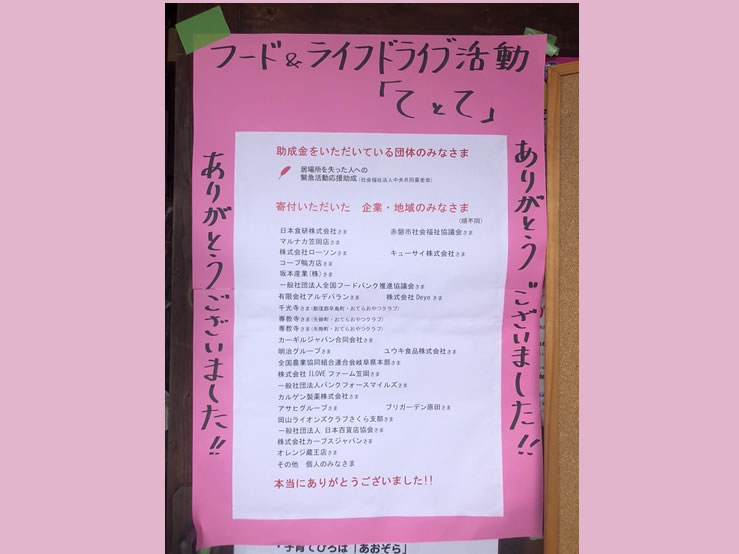 フード&ライフドライブ活動
「てとて」
ありがとうございました!!
ありがとうございました!!
助成金をいただいている団体のみなさま
居場所を失った人への
緊急活動応援助成(社会福祉法人中央共同募金会)
寄付いただいた 企業・地域のみなさま
(順不同)
日本食研株式会社さま 赤磐市社会福祉協議会さま
マルナカ笠岡店さま
株式会社ローソンさま キューサイ株式会社さま
コープ鴨方店さま
坂本産業(株)さま
一般社団法人全国フードバンク推進協議会さま
有限会社アルデバランさま 株式会社Deyeさま
千光寺さま(都窪郡早島町・おてらおやつクラブ)
専教寺さま(矢掛町・おてらおやつクラブ)
専教寺さま(矢掛町・おてらおやつクラブ)
カーギルジャパン合同会社さま
明治グループさま ユウキ食品株式会社さま
全国農業協同組合連合会岐阜県本部さま
株式会社 ILOVE ファーム笠岡さま
一般社団法人バンクフォースマイルズさま
カルゲン製薬株式会社さま
アサヒグループさま ブリガーデン原田さま
岡山ライオンズクラブさくら支部さま
一般社団法人 日本百貨店協会さま
株式会社カーブスジャパンさま
オレンジ蔵王店さま
その他 個人のみなさま
本当にありがとうございました!!
・子育てひろば「あおぞら」